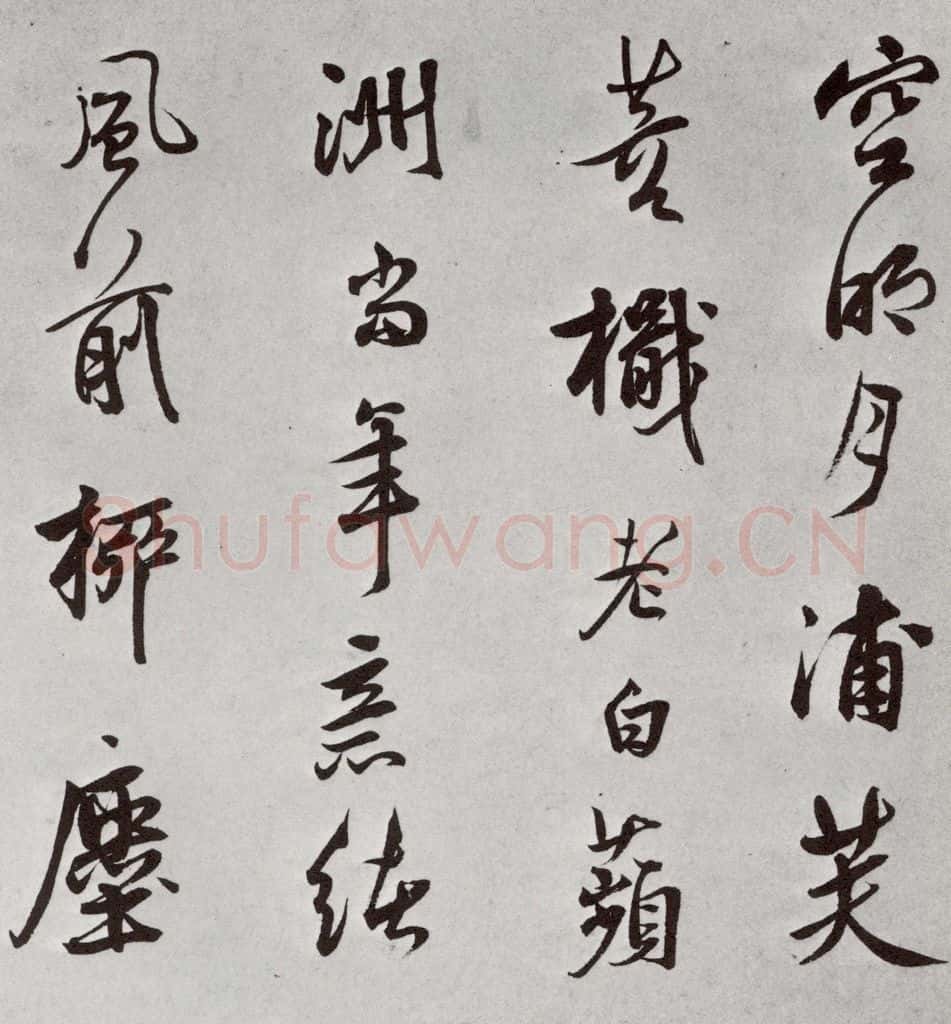 空明月浦芙
蓉檝老白蘋
洲當年意結
風前㧕塵
Shufawang.CN